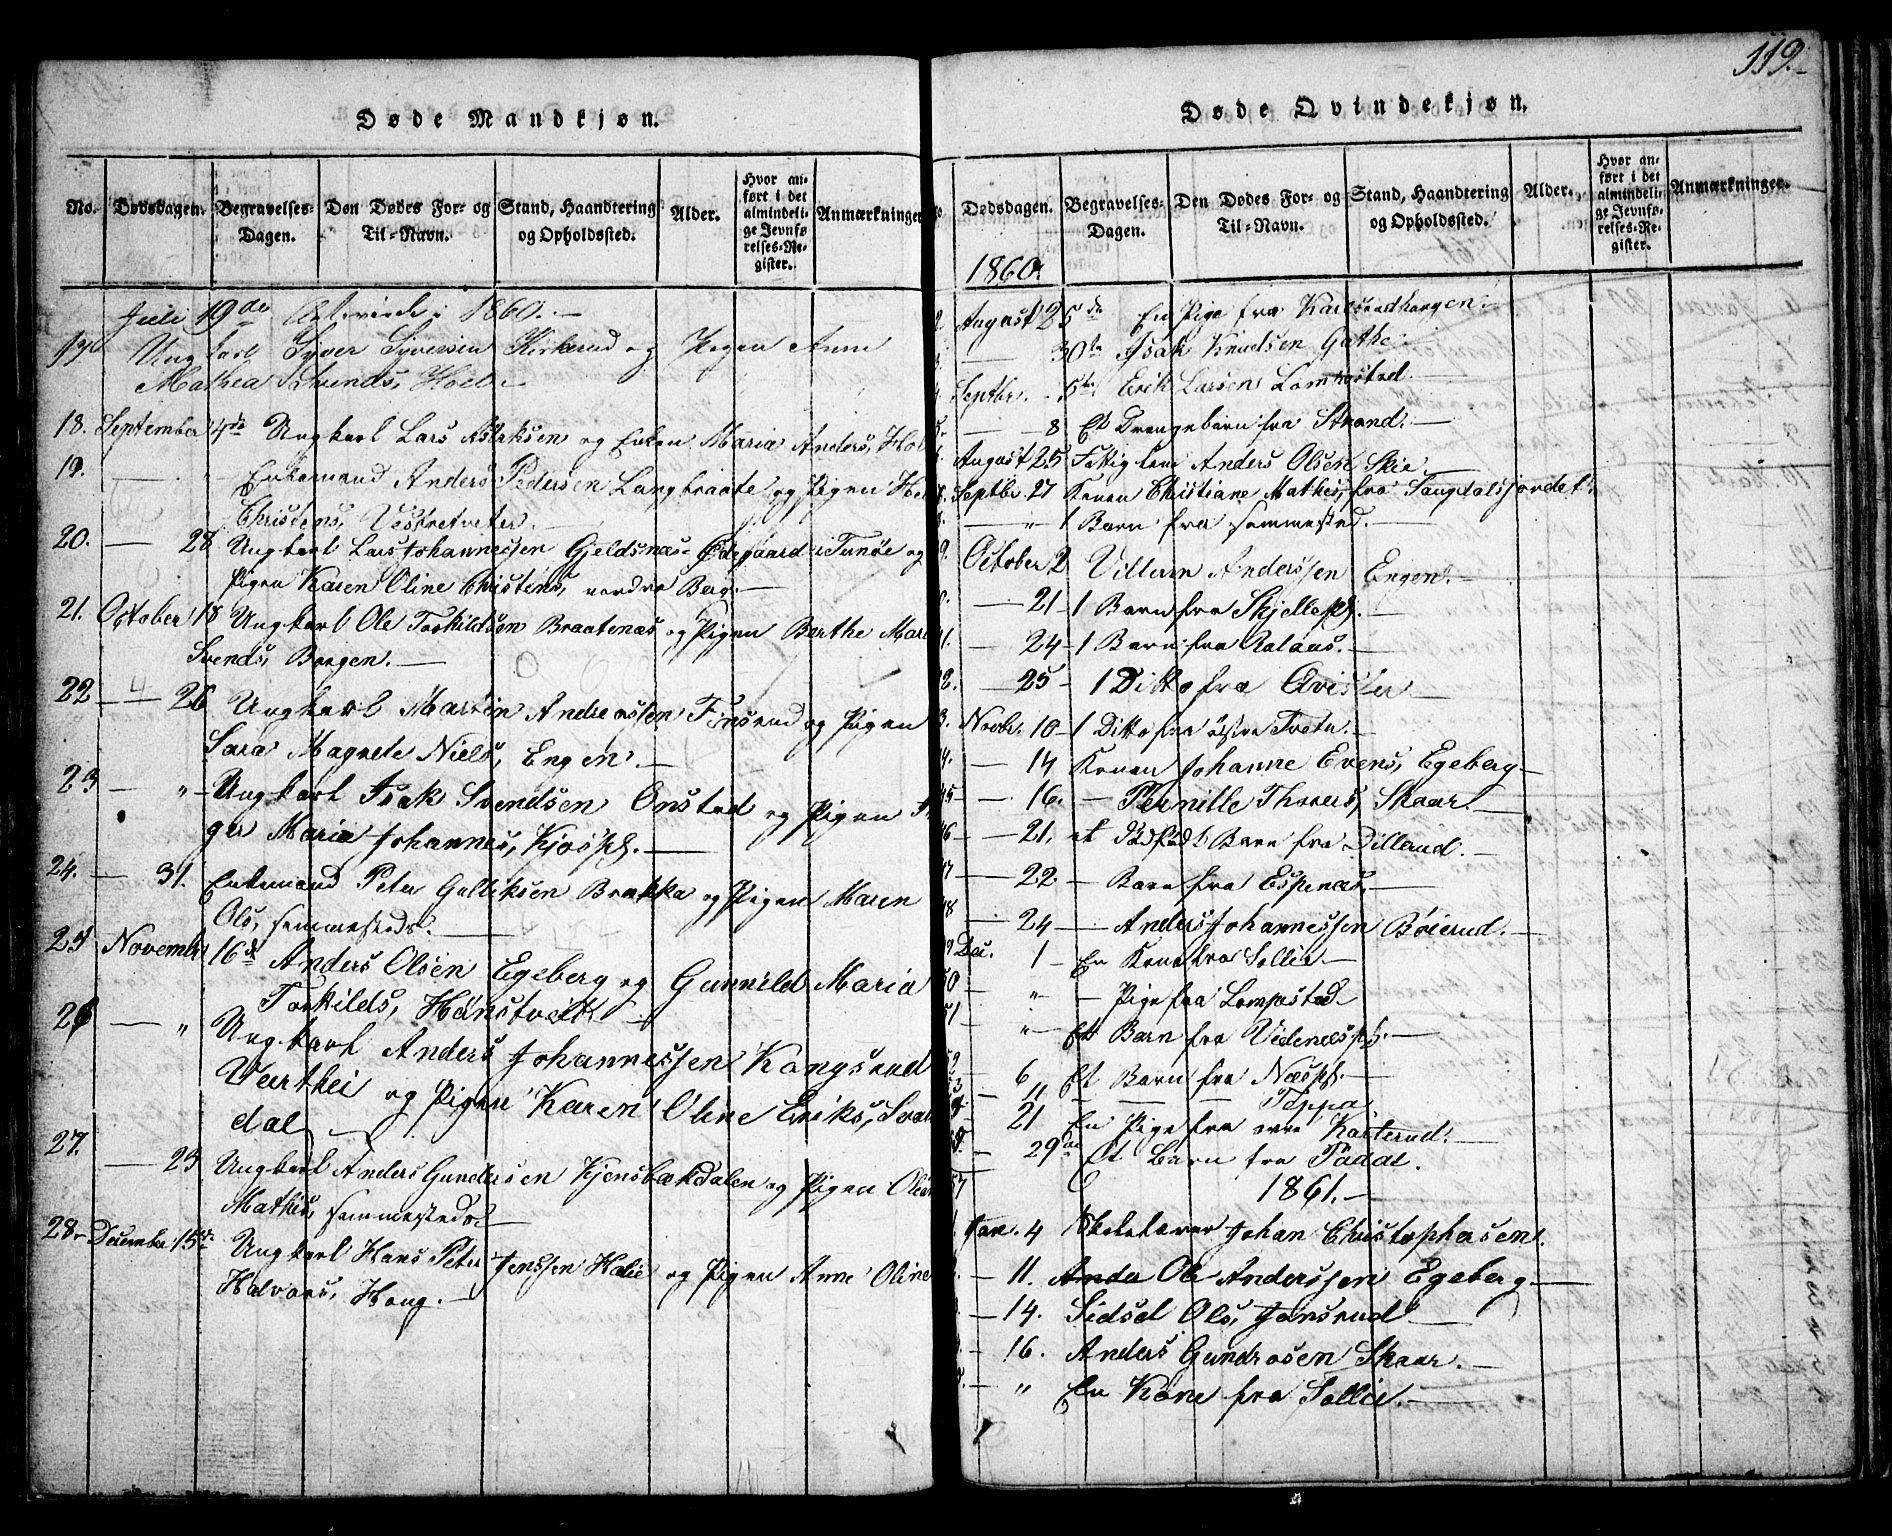 119.
Døde Mandkjøn.
No. Dødsdagen. Begravelses-Dagen. Den Dødes For- og Til-Navn. Stand, Haandtering og Opholdssted. Alder. Hvor anført i det almindelige Jevnførelses-Register. Anmærkninger
Juli 19de 1860.
17 Ungkarl Syver Syversen Kirkerud og Pigen Anne
Mathea Svends, Hoel.
18. September 4de Ungkarl Lars Isaksen og Enken Maria Anders, Hol
19. — " Enkemand Anders Pedersen Langbraate og Pigen
Christens, Vestretveter.
20. — 28 Ungkarl Lars Johannessen Gjeldsnæs-Ødegaard i Tunøe og
Pigen Karen Oline Christens, nordre Berg.
21. October 18 Ungkarl Ole Torkildsen Braatenæs og Pigen Berthe Mari
Svends, Borgen.
22 — 26 Ungkarl Martin Andreassen Fonsrud og Pigen
Sara Magrete Niels, Engen.
23 — " Ungkarl Isak Svendsen Onstad og Pigen
ger Maria Johannes, Kjospl.
24. — 31. Enkemand Peter Gulliksen Brækka og Pigen Maren
Ols, sammesteds.
25 Novembr 16de Anders Olsen Egeberg og Gunnild Maria
Torkilds, Hanstvedt
26 — " Ungkarl Anders Johannessen Kongsrud
og Pigen Karen Oline Eriks,
dal
27. — 23 Ungkarl Anders Gundersen Kjensbækdalen og Pigen
Mathis, sammesteds
28. December 15de Ungkarl Hans Peter Jenssen Halie og Pigen Anne Oline
Halvors, Houg.
Døde Qvindekjøn.
Dødsdagen. Begravelses-Dagen. Den Dødes For- og Til-Navn. Stand, Haandtering og Opholdssted. Alder. Hvor anført i det almindelige Jevnførelses-Register. Anmærkninger.
1860.
August 25de En Pige fra Karlsrudhaugen.
— 30te Isak Knudsen Gathe.
Septbr. 5te Erik Larsen Lomnestad.
— 8 Et Drengebarn fra Strand.
August 25 Fattiglem Anders Olsen Skie
Septbr. 27 Konen Christiane Mathis, fra Taugdalsjordet.
— " 1 Barn fra sammested.
October 2 Villum Anderssen Engen.
— 21 1 Barn fra Skjellepl.
— 24 1 Barn fra Aalaas.
— 25 1 Ditto fra Qvister
Novbr. 10 1 Ditto fra østre Tveter.
— 14 Konen Johanne Evens, Egeberg
— 16. — Pernille Thores, Skaar.
— 21. et dødfødt Barn fra Dillerud.
— 22 — Barn fra Espenæs.
— 24 — Anders Johannessen Bøierud.
Dec. 1 En Kone fra Sollie
— " — Pige fra Lompestad
— " Et Barn fra Vedenæspl.
— 6 Et Barn fra Næspl.
— 11 — — — Toppa
— 21 En Pige fra øvre Kasterud.
— 29de Et Barn fra Taaal.
1861.
Jan. 4 Skolelærer Johan Christophersen.
— 11. Ole Anderssen Egeberg.
— 14. Sidsel Ols, Jonsrud
— 16. Anders Gundrosen Skaar.
— " En Kone fra Sollie.